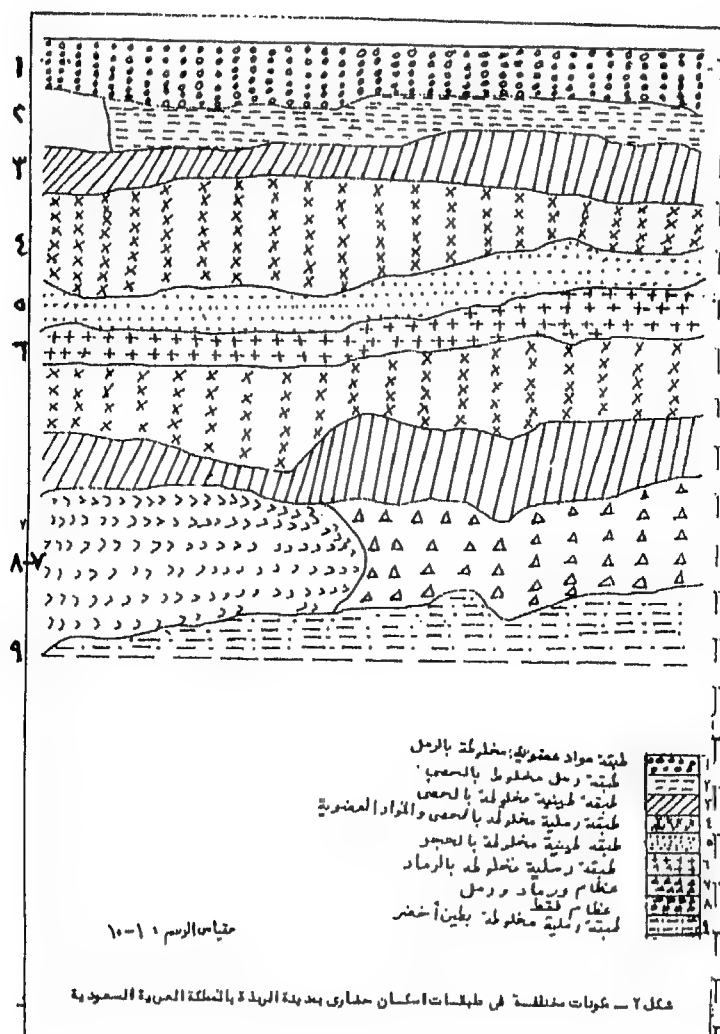 ١
٢
٣
٤
٥
٦
٧
٨-٧
٩
طبقة مواد عضوية مخلوطة بالرمل
طبقة رمل مخلوط بالحصى
طبقة طينية مخلوطة بالحصى
طبقة رملية مخلوطة بالحصى والمواد العضوية
طبقة طينية مخلوطة بالحجر
طبقة رملية مخلوطة بالرماد
عظام ورماد ورمل
عظام فقط
طبقة رملية مخلوطة بطين أخضر
١
٢
٣
٤
٥
٦
٧
٨
٩
مقياس الرسم : ١-١٠
شكل ٢ – مكونات مختلفة في طبقات اسكان حضارى بمدينة الربذة بالمملكة العربية السعودية